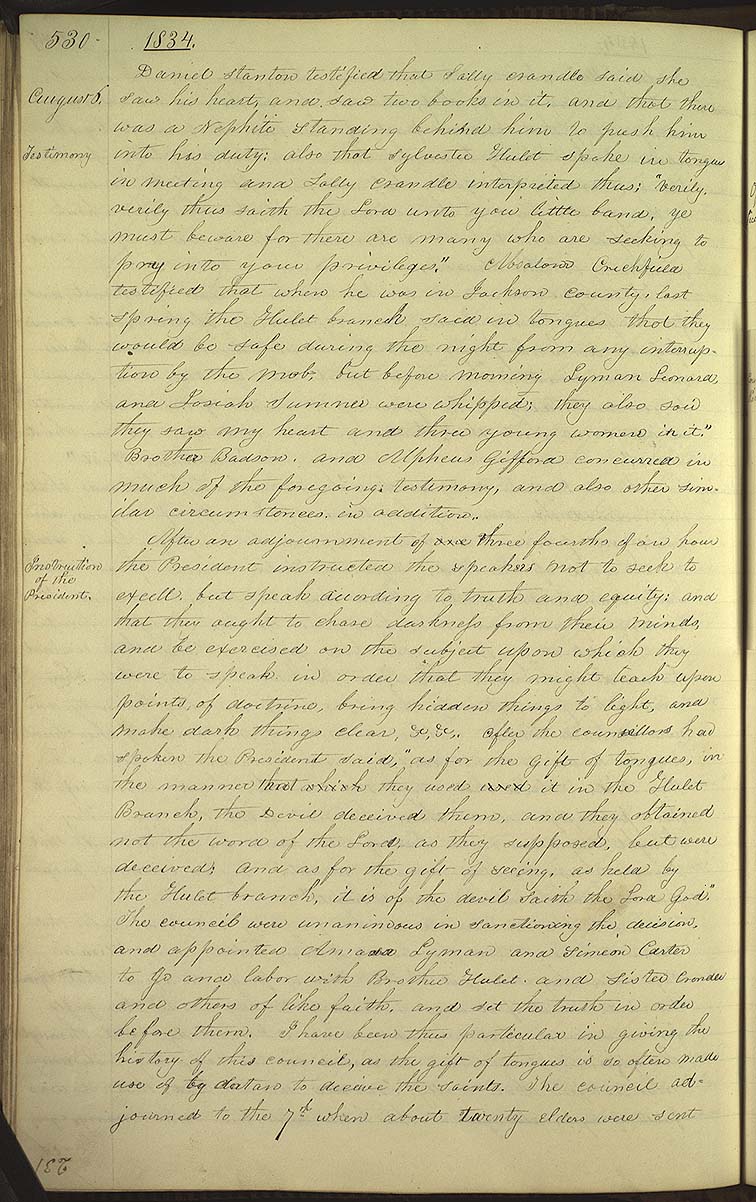 530-
1834.
Daniel Stanton testified that Sally Crandle said she
August 6.
saw his heart, and saw two books in it, and that there
was a Nephite standing behind him to push him
Testimony
into his duty; also that Sylvester Hulet spoke in tongues
in meeting and Sally Crandle interpreted thus; "Verily,
verily thus saith the Lord unto you little band, ye
must beware for there are many who are seeking to
pry into your privileges." Absalom Crichfield
testified that when he was in Jackson county, last
spring the Hulet branch said in tongues that they
would be safe during the night from any interrup-
tion by the mob; but before morning Lyman Leonard,
and Josiah Sumner were whipped; they also said
they saw my heart and three young women in it."
Brother Badson, and Alpheus Gifford concurred in
much of the foregoing testimony, and also other simi-
lar circumstances in addition.
After an adjournment of one three fourths of an hour
Instruction
of the
President.
the President instructed the speakers not to seek to
excell, but speak according to truth and equity; and
that they ought to chase darkness from their minds,
and be exercised on the subject upon which they
were to speak in order that they might teach upon
points, of doctrine, bring hidden things to light, and
make dark things clear, &, &,. after the counsellors had
spoken the President said, "as for the gift of tongues, in
the manner that which they used used it in the Hulet
Branch, the Devil deceived them, and they obtained
not the word of the Lord, as they supposed, but were
deceived; and as for the gift of seeing, as held by
the Hulet branch, it is of the devil saith the Lord God."
The council were unanimous in sanctioning the decision,
and appointed Amasa Lyman and Simeon Carter
to go and labor with Brother Hulet and Sister Crandle
and others of like faith, and set the truth in order
before them. I have been thus particular in giving the
history of this council, as the gift of tongues is so often made
use of by Satan to deceive the saints. The council ad=
journed to the 7th when about twenty elders were sent